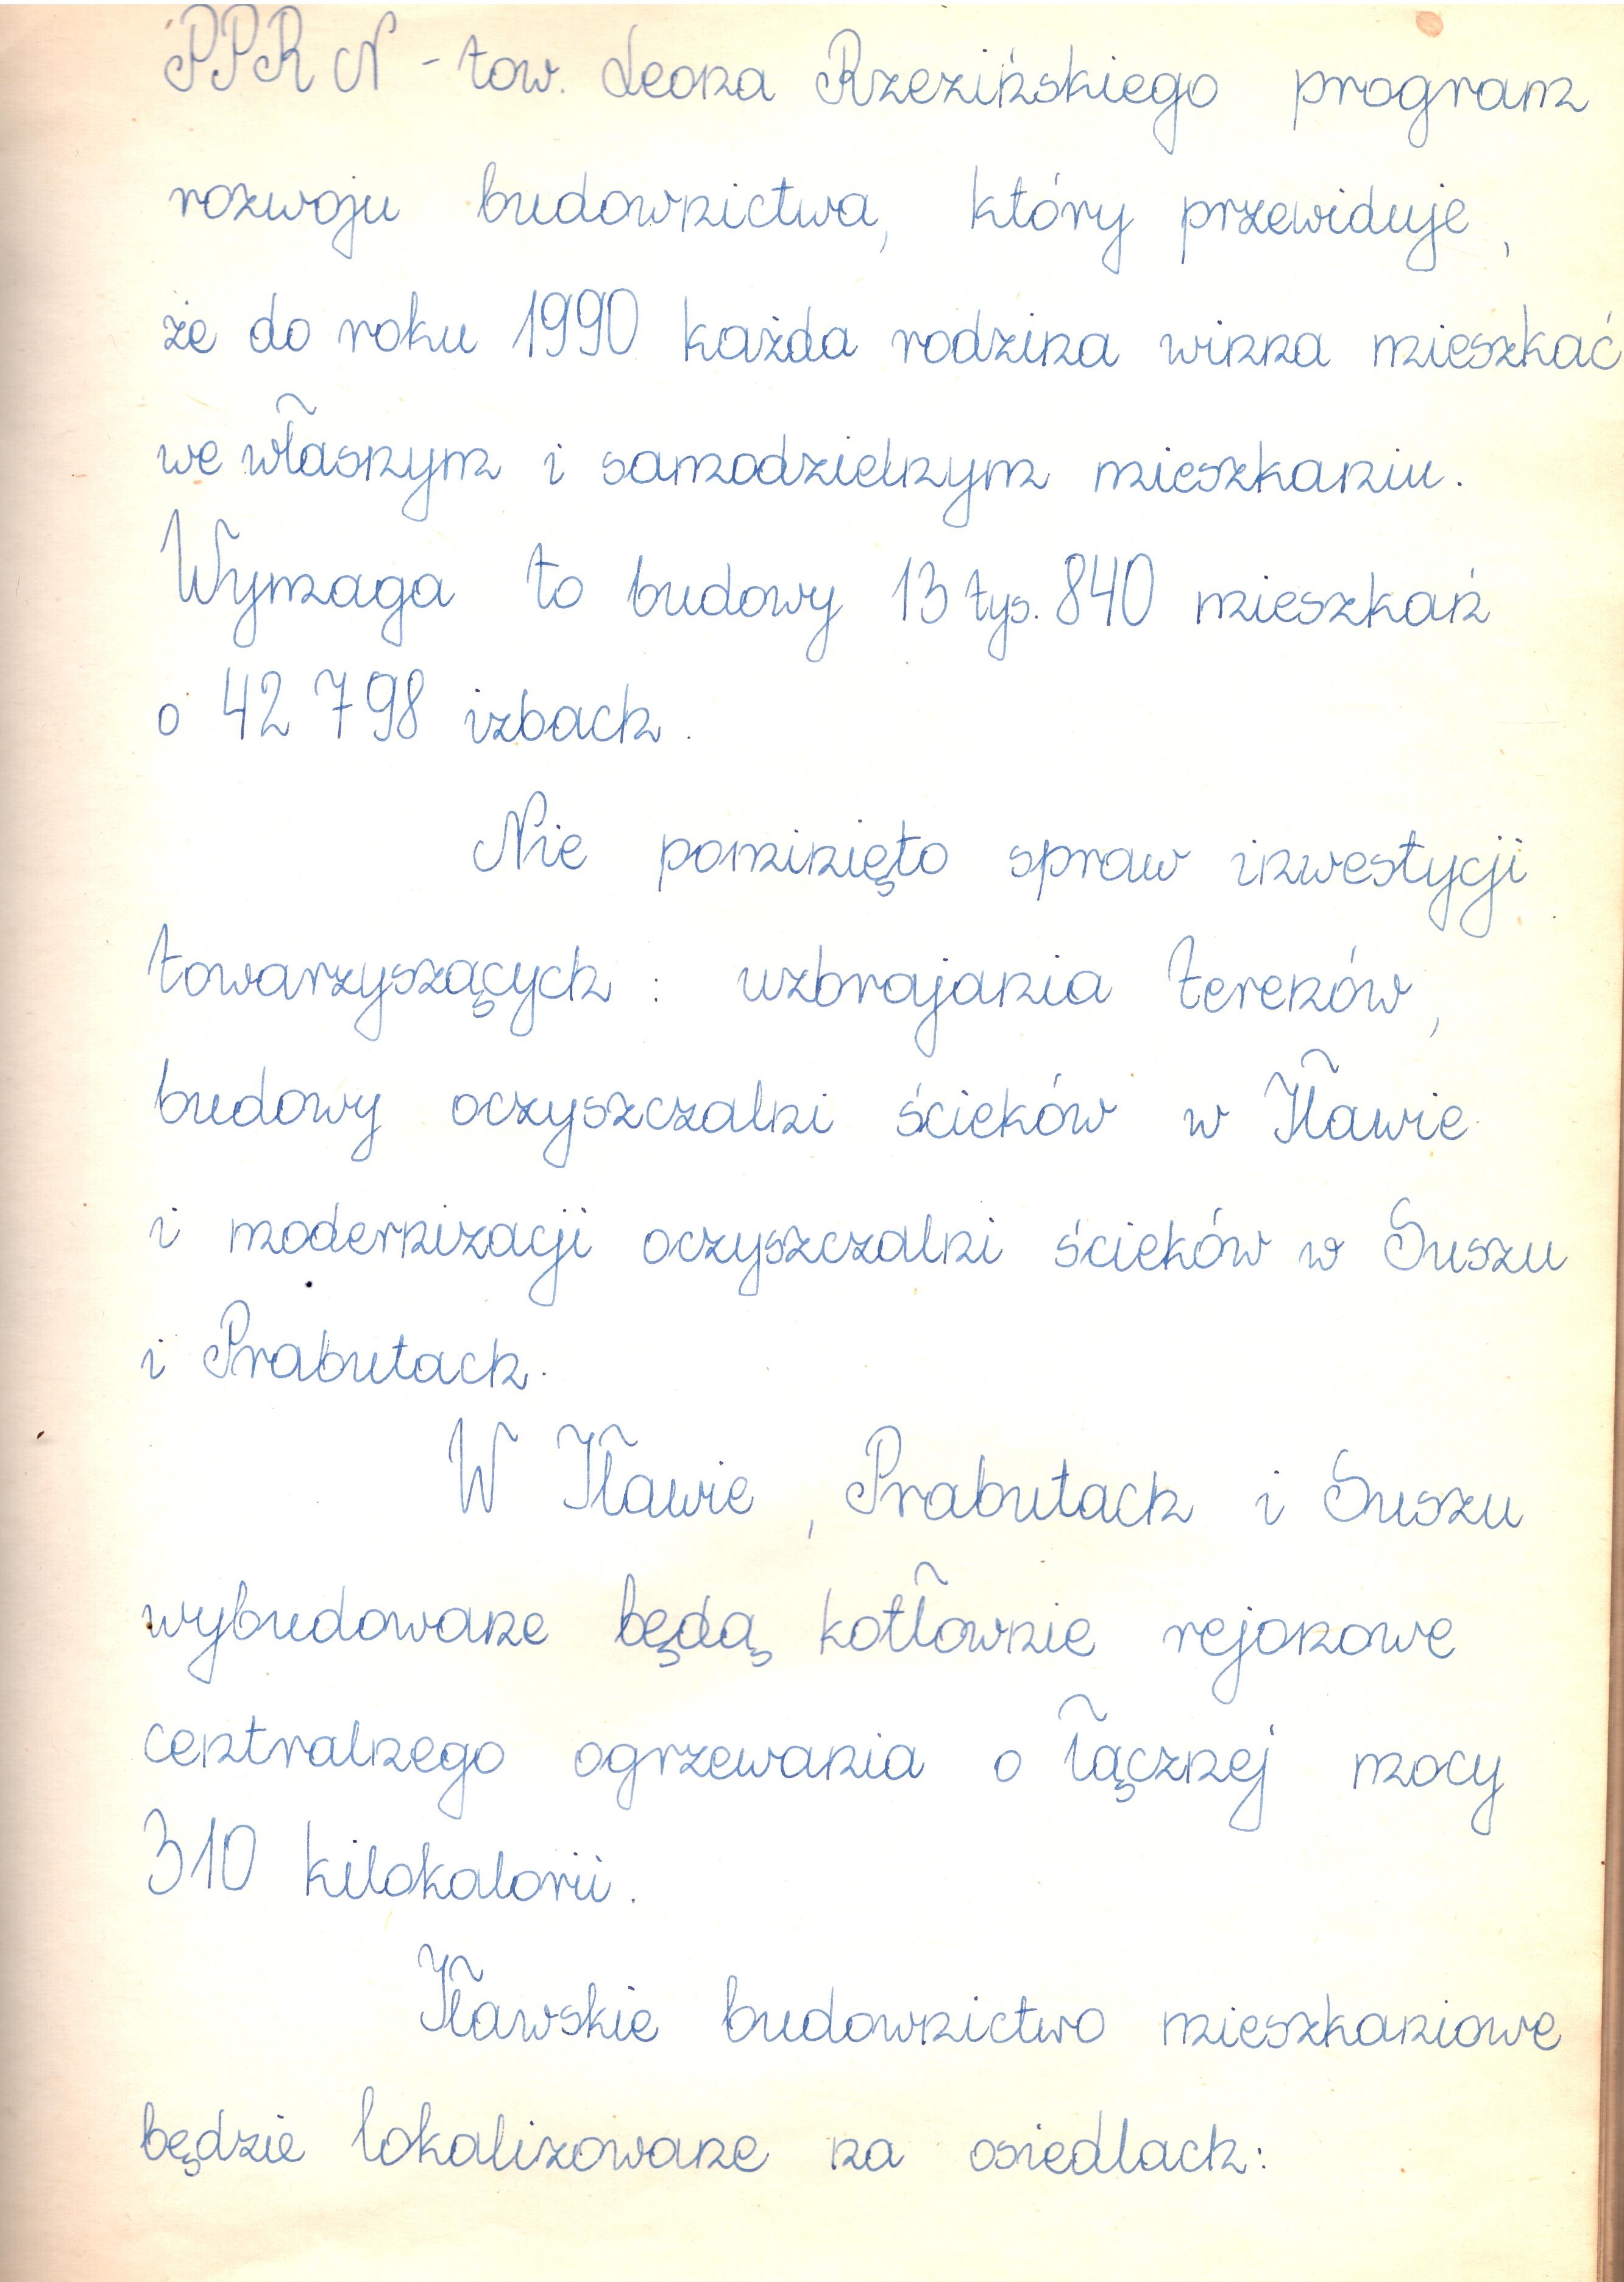 PPRN - tow. Leona Rzezińskiego program
rozwoju budownictwa, który przewiduje,
że do roku 1990 każda rodzina winna mieszkać
we własnym i samodzielnym mieszkaniu.
Wymaga to budowy 13 tys. 840 mieszkań
o 42 798 izbach.
Nie pominięto spraw inwestycji
towarzyszących : uzbrajania terenów,
budowy oczyszczalni ścieków w Iławie
i modernizacji oczyszczalni ścieków w Suszu
i Prabutach.
W Iławie, Prabutach i Suszu
wybudowane będą kotłownie rejonowe
centralnego ogrzewania o łącznej mocy
310 kilokalorii.
Iławskie budownictwo mieszkaniowe
będzie lokalizowane na osiedlach: